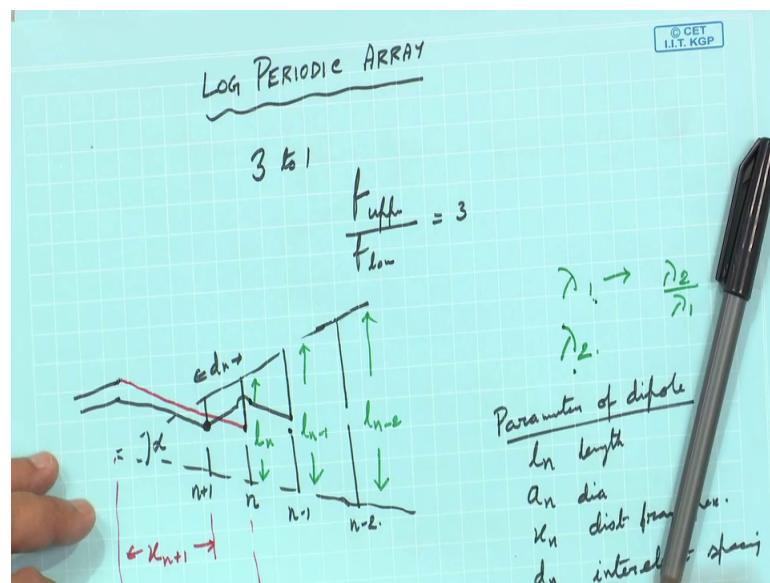 © CET
I.I.T. KGP
LOG PERIODIC ARRAY
3 to 1
f upp / f low = 3
λ₁ → λ₂/λ₁
λ₂
← dₙ →
lₙ
lₙ₋₁
lₙ₋₂
α
n+1
n
n-1
n-2
← xₙ₊₁ →
Parameter of dipole
lₙ length
aₙ dia
xₙ dist
dₙ spacing